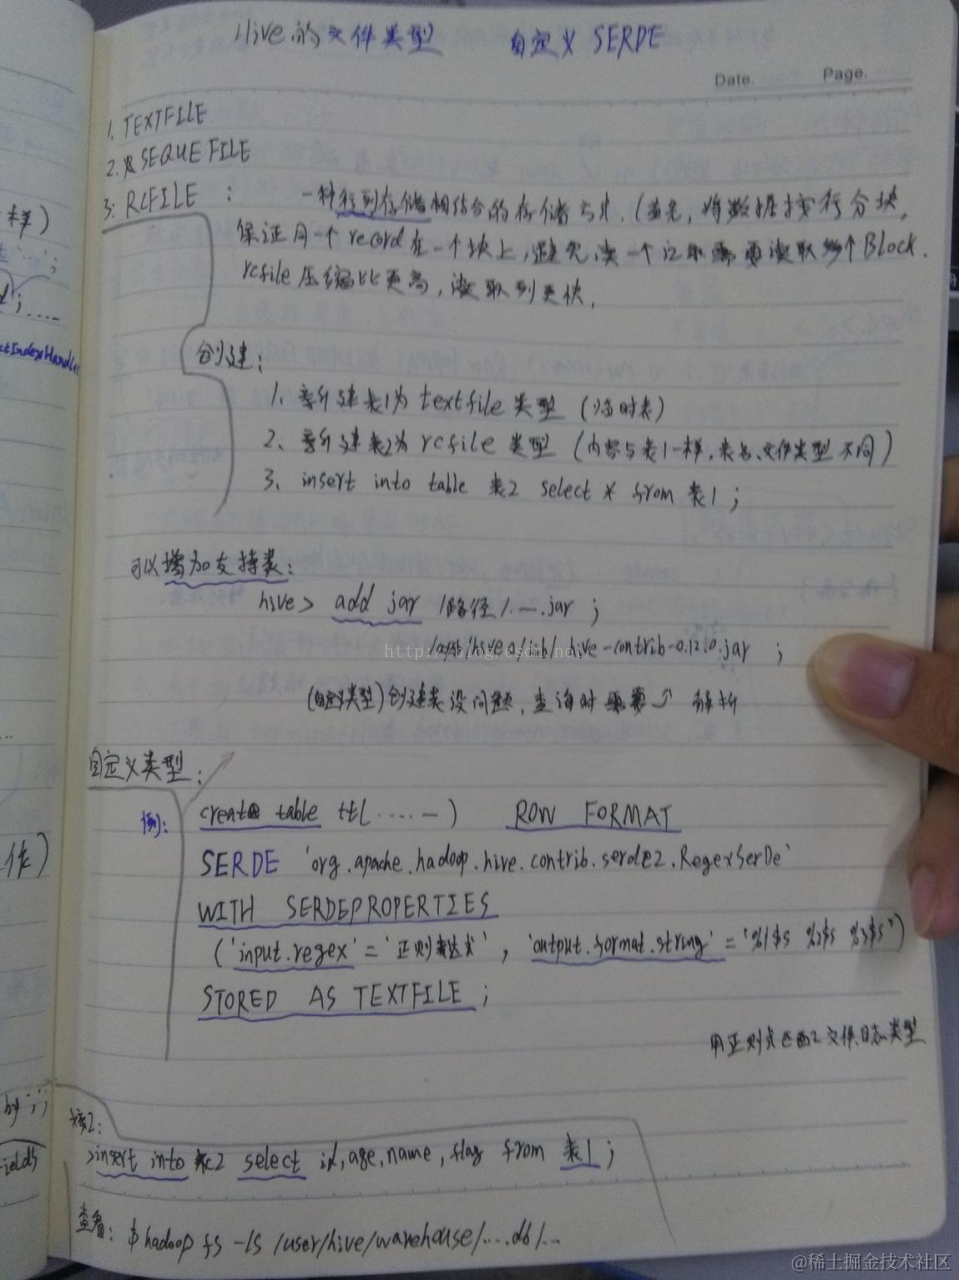 Hive的文件类型 自定义 SERDE
Date. Page.
1. TEXTFILE
2. SEQUEFILE
3. RCFILE : 一种行列存储相结合的存储方式.(首先,将数据按行分块,
保证同一个record在一个块上,避免读一个记录需要读取多个Block.
rcfile压缩比更高,读取列更快.
创建:
1、新建表1为textfile类型(临时表)
2、新建表2为rcfile类型(内容与表1一样,表名、文件类型不同)
3、insert into table 表2 select * from 表1;
可以增加支持类:
hive> add jar /路径/.—.jar ;
/hive-contrib-0.12.0.jar ;
(自定义类型)创建表没问题,查询时需要 解析
自定义类型:
例: create table tt(.....—) ROW FORMAT
SERDE 'org.apache.hadoop.hive.contrib.serde2.RegexSerDe'
WITH SERDEPROPERTIES
('input.regex'='正则表达式','output.format.string'='%1$s %2$s %3$s')
STORED AS TEXTFILE ;
用正则式匹配 文件日志类型
>insert into 表2 select id,age,name,flag from 表1;
查看: $ hadoop fs -ls /user/hive/warehouse/....db/...
样)
作)
by ';';
ields
http://blog.csdn.net
@稀土掘金技术社区